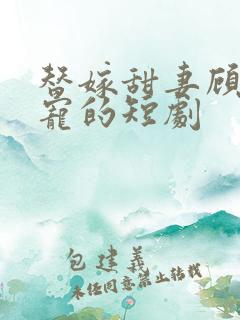 替嫁甜妻顾
宠的短劇
包建義
未经同意禁止转载